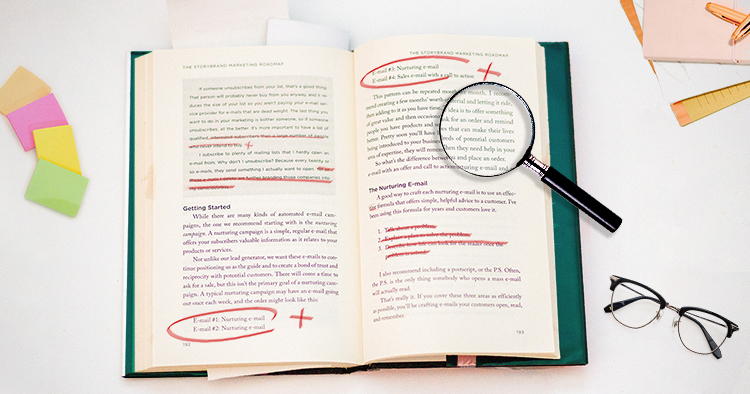 THE STORYBRAND MARKETING ROADMAP
If someone unsubscribes from your list, that's a good thing.
That person will probably never buy from you anyway, and it re-
duces the size of your list so you aren't paying your e-mail ser-
vice provider for e-mails that are dead weight. The last thing you
want to do in your marketing is bother someone, so if someone
unsubscribes, all the better. It's more important to have a list of
qualified, interested subscribers than a large number of people
who never intend to
I subscribe to plenty of mailing lists that I hardly open an
e-mail from. Why don't I unsubscribe? Because every twenty or
so e-mails, they send something I actually want to open.
these e-mails are further branding those companies into
my consciousness.
Getting Started
While there are many kinds of automated e-mail cam-
paigns, the one we recommend starting with is the nurturing
campaign. A nurturing campaign is a simple, regular e-mail that
offers your subscribers valuable information as it relates to your
products or services.
Not unlike our lead generator, we want these e-mails to con-
tinue positioning us as the guide and to create a bond of trust and
reciprocity with potential customers. There will come a time to
ask for a sale, but this isn't the primary goal of a nurturing cam-
paign. A typical nurturing campaign may have an e-mail going
out once each week, and the order might look like this:
E-mail #1: Nurturing e-mail
E-mail #2: Nurturing e-mail
192
THE STORYBRAND MARKETING ROADMAP
E-mail #3: Nurturing e-mail
E-mail #4: Sales e-mail with a call to action
This pattern can be repeated month month. I recom
mend creating a few months' worth material and letting it ride,
then adding to it as you have time. idea is to offer something
of great value and then occasion ask for an order and remind
people you have products and that can make their lives
better. Pretty soon you'll have reds of potential customers
being introduced to your business then they need help in your
area of expertise, they will remem and place an order.
So what's the difference be
e-mail with an offer and call to action nurturing e-mail and
The Nurturing E-mail
A good way to craft each nurturing e-mail is to use an effec-
tive formula that offers simple, helpful advice to a customer. I've
been using this formula for years and customers love it.
1. Talk about a problem.
2. Explain a plan to solve the problem.
3. Describe how life can look for the reader once the
problem is solved.
I also recommend including a postscript, or the P.S. Often,
the P.S. is the only thing somebody who opens a mass e-mail
will actually read.
That's really it. If you cover these three areas as efficiently
as possible, you'll be crafting e-mails your customers open, read,
and remember.
193